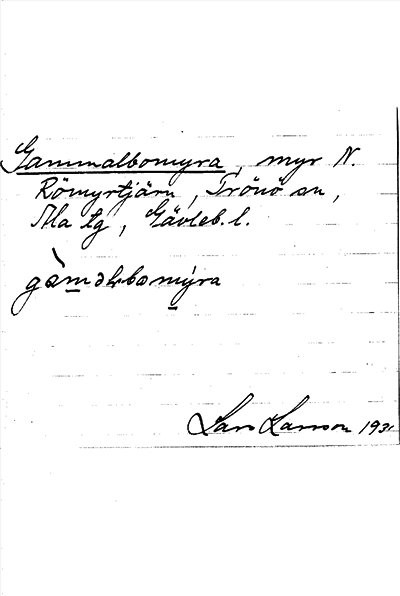 Gammalbomyra, myr N.
Römyrtjärn, Trönö sn,
Ala tg, Gävleb. l.
gàmalbomýra
Lars Larsson 193